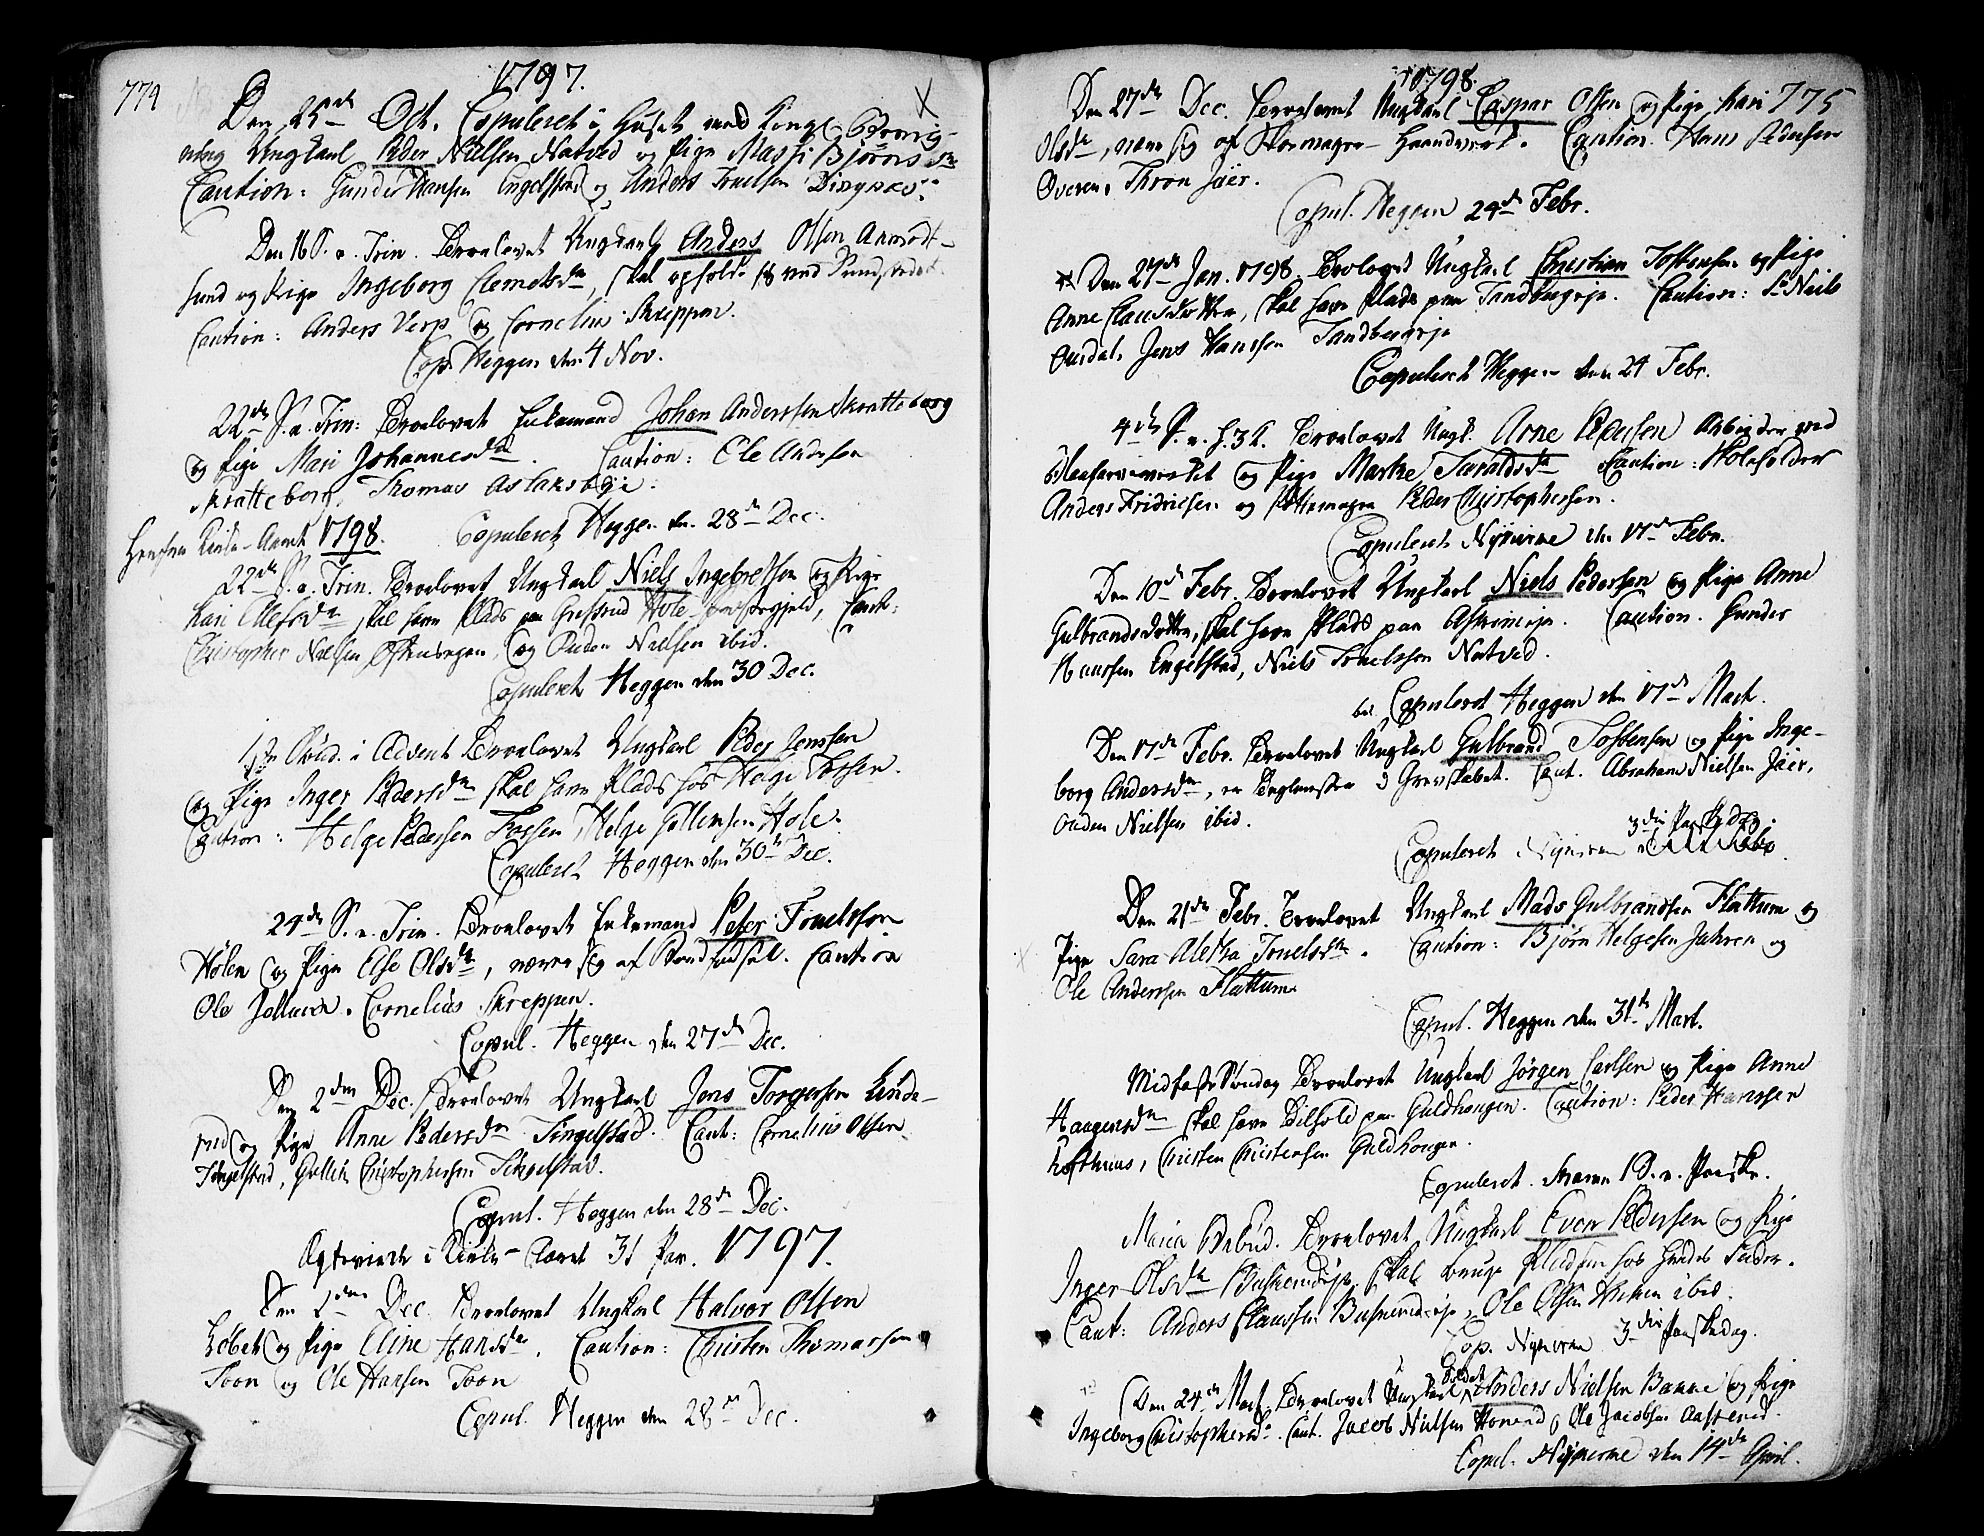 774
1797.
Den 25de Oct. Copuleret i Huset med Kongl.
Ungkarl Peder Nielsen Natved og Pige Massi Bjørnsdr
Caution: Gunder Hansen Engelstad og Anders Truelsen
Den 16 S. a. Trin. Trolovet Ungkarl Anders Olsen
sund og Pige Ingeborg Clemetsdr, skal opholde sig ved
Caution: Anders Verp og Cornelius Skreppen.
Cop. Heggen den 4 Nov.
22de S. a. Trin: Trolovet Enkemand Johan Anderssen Skratteborg
og Pige Mari Johannesdr. Caution: Ole Andersen
Skratteborg, Thomas Aslaksbye.
Copuleret Heggen den 28de Dec.
1798.
22de S. a. Trin. Trolovet Ungkarl Niels Ingebretsen og Pige
Kari Olefsdr skal have Plads paa Hole Præstegield, Caut:
Christopher Nielsen, og Ouden Nielsen ibid.
Copuleret Heggen den 30 Dec.
1ste Sønd. i Advent Trolovet Ungkarl Peder Jenssen
og Pige Inger Pedersdr skal have Plads hos Helge Fossen.
Caution: Helge Pedersen Fossen, Helge Gullensen Hole.
Copuleret Heggen den 30te Dec.
24de S. a. Trin. Trolovet Enkemand Peter Truelssøn
Hølen og Pige Else Olsdr, nærer sig af. Caution
Ole, Cornelius Skreppen.
Copul. Heggen den 27de Dec.
Den 2den Dec. Trolovet Ungkarl Jens Torgersen
rud og Pige Anne Pedersdr Tingelstad. Caut: Cornelius Olsen
Tingelstad, Gullik Christophersen Tingelstad.
Copul. Heggen den 28de Dec.
Egteviede i Kirke-Aaret 31 Par. 1797.
Den 2den Dec. Trolovet Ungkarl Halvor Olsen
og Pige Eline Hansdr. Caution: Christen Thomassen
Toon og Ole Hansen Toon
Copul. Heggen den 28de Dec.
1798.
775
Den 27de Dec. Trolovet Ungkarl Caspar Olsen og Pige Kari
Olsdr, nærer sig af Skomager-Haandverk. Caution. Hans Pedersen
Overen, Thron Jaer.
Copul. Heggen 24de Febr.
Den 27de Jan. 1798 Trolovet Ungkarl Christian Tostensen og Pige
Anne Clausdatter, skal have Plads paa Tandbergeje. Caution: Sr Niels
Ourdal, Jens Hanssen Tandbergeje
Copuleret Heggen den 24 Febr.
4de S. a. H. 3 K. Trolovet Ungk. Arne Pedersen Arbejder ved
Blaafarveverket og Pige Marte Taraldsdr Caution: Holzfoldter
Anders Fridricsen og Pottemager Peder Christophersen.
Copuleret Nykirke den 17de Febr.
Den 10de Febr. Trolovet Ungkarl Niels Pedersen og Pige Anne
Gulbrandsdatter, skal have Plads paa. Caution. Gunder
Hanssen Engelstad, Niels Truelssen Natved.
Copuleret Heggen den 17de Mart.
Den 17de Febr. Trolovet Ungkarl Gulbrand Tostensen og Pige Inge-
borg Andersdr, er i Grevskabet. Caut. Abraham Nielsen Jaer,
Ouden Nielsen ibid.
3die Paaskedag.
Copuleret Nykirken
Den 21de Febr. Trolovet Ungkarl Mads Gulbrandsen Flattum og
Pige Sara Aletha Truelsdr. Caution: Bjørn Helgesen Jahren og
Ole Anderssen Flattum.
Copul. Heggen den 31te Mart.
Midfaste Søndag Trolovet Ungkarl Jørgen Larssen og Pige Anne
Haagensdr skal have Tilhold paa Guldhougen. Caution: Peder Hanssen
Lofthuus, Christen Christensen Guldhougen.
Copuleret Snarum 1 S. a. Paaske.
Maria Bebud. Trolovet Ungkarl Even Pedersen og Pige
Inger Olsdr Buskerudeje, skal bruge Pladsen hos hendes Fader.
Caut: Anders Claussen Buskerudeje, Ole Olsen ibid.
Cop. Nykirken 3die Paaskedag.
Den 24de Mart. Trolovet Ungkarl Anders Nielsen og Pige
Ingeborg Christophersdr. Caut. Jacob Nielsen Hoverud, Ole Jacobsen
Copul. Nykirke den 14de April.